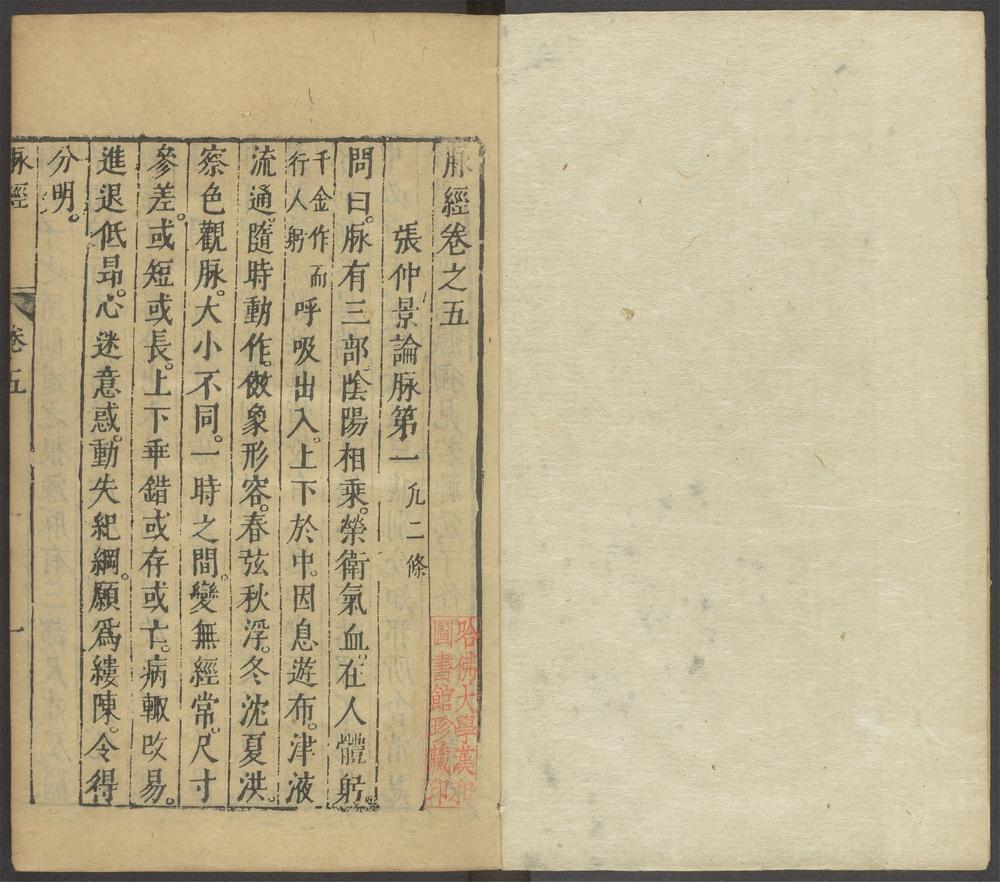 脉經卷之五
張仲景論脉第一 凢二條
問曰。脉有三部。隂陽相乘。榮衛氣血。在人體躬。
千金作而行人躬
呼吸出入。上下於中。因息遊布。津液
流通。隨時動作。傚象形容。春弦秋浮。冬沈夏洪。
察色觀脉。大小不同。一時之間。變無經常。尺寸
參差。或短或長。上下乖錯。或存或亡。病輙改易。
進退低昻。心迷意惑。動失紀綱。願爲縷陳。令得
分明。
脉經 卷五 一
哈佛大學漢和
圖書館珍藏印